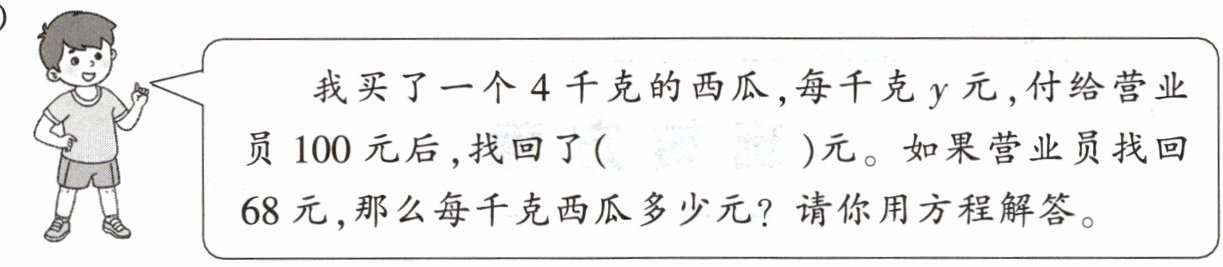 我买了一个4千克的西瓜,每千克y元,付给营业
员100元后,找回了(　　　)元。如果营业员找回
68元,那么每千克西瓜多少元?请你用方程解答。